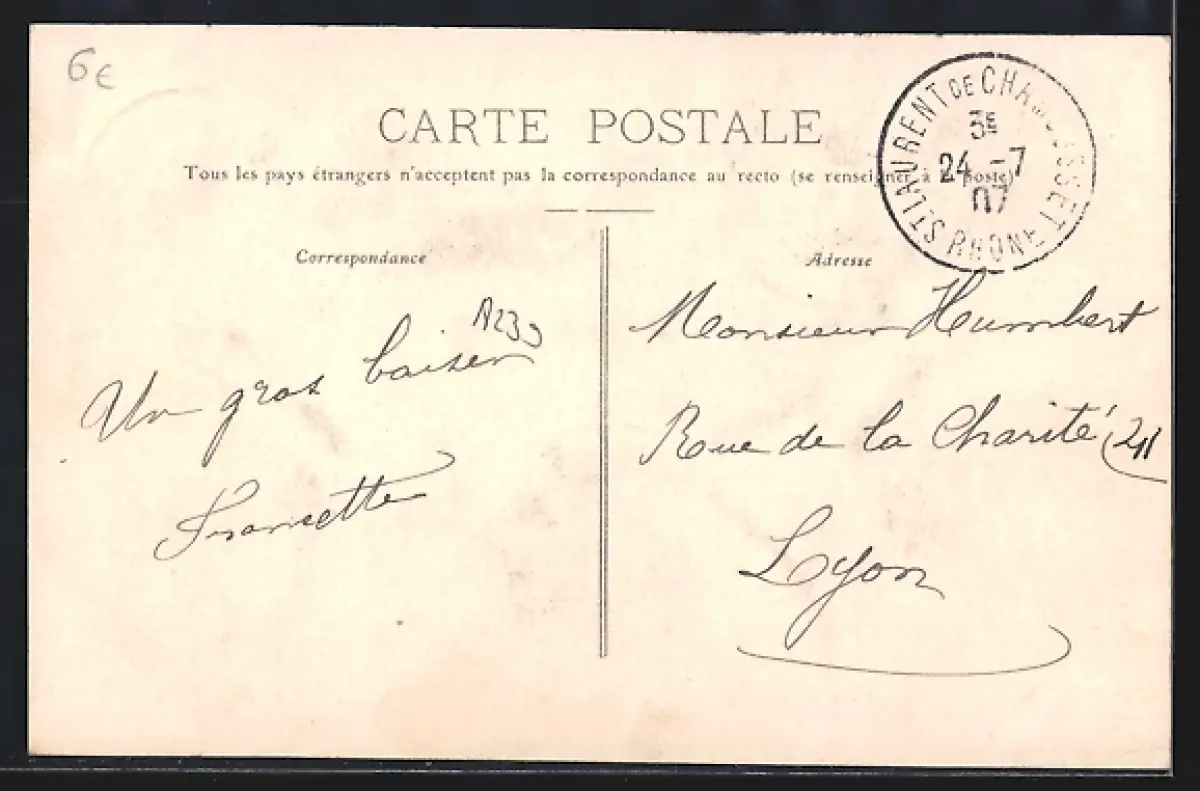 6€
CARTE POSTALE
Tous les pays étrangers n'acceptent pas la correspondance au recto (se renseigner à la poste)
ST LAURENT DE CHAMOUSSET
3E
24 -7
07
RHONE
Correspondance
Un gros baiser
Francette
Adresse
Monsieur Humbert
Rue de la Charité
Lyon